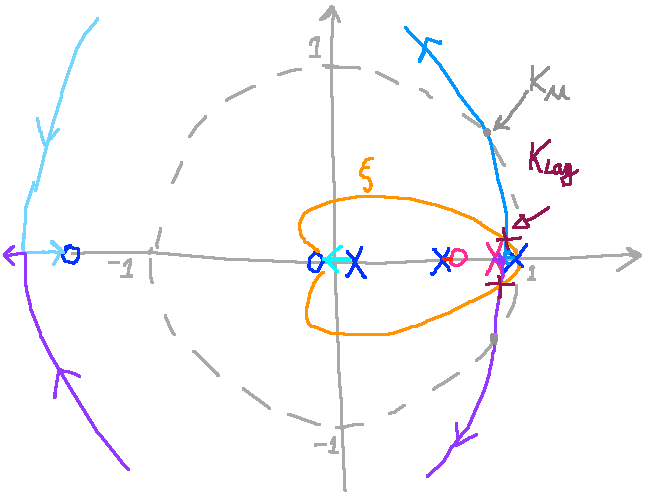 1
Kμ
ξ
Klag
-1
1
-1